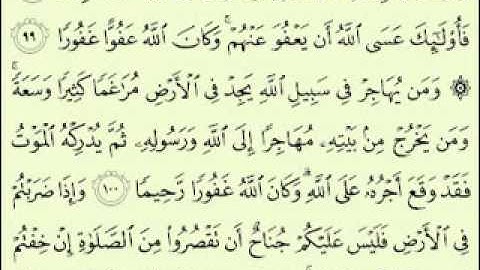 فَأُو۟لَـٰٓئِكَ عَسَى ٱللَّهُ أَن يَعْفُوَ عَنْهُمْ ۚ وَكَانَ ٱللَّهُ عَفُوًّا غَفُورًا ٩٩
۞ وَمَن يُهَاجِرْ فِى سَبِيلِ ٱللَّهِ يَجِدْ فِى ٱلْأَرْضِ مُرَٰغَمًا كَثِيرًا وَسَعَةً ۚ
وَمَن يَخْرُجْ مِنۢ بَيْتِهِۦ مُهَاجِرًا إِلَى ٱللَّهِ وَرَسُولِهِۦ ثُمَّ يُدْرِكْهُ ٱلْمَوْتُ
فَقَدْ وَقَعَ أَجْرُهُۥ عَلَى ٱللَّهِ ۗ وَكَانَ ٱللَّهُ غَفُورًا رَّحِيمًا ١٠٠ وَإِذَا ضَرَبْتُمْ
فِى ٱلْأَرْضِ فَلَيْسَ عَلَيْكُمْ جُنَاحٌ أَن تَقْصُرُوا۟ مِنَ ٱلصَّلَوٰةِ إِنْ خِفْتُمْ